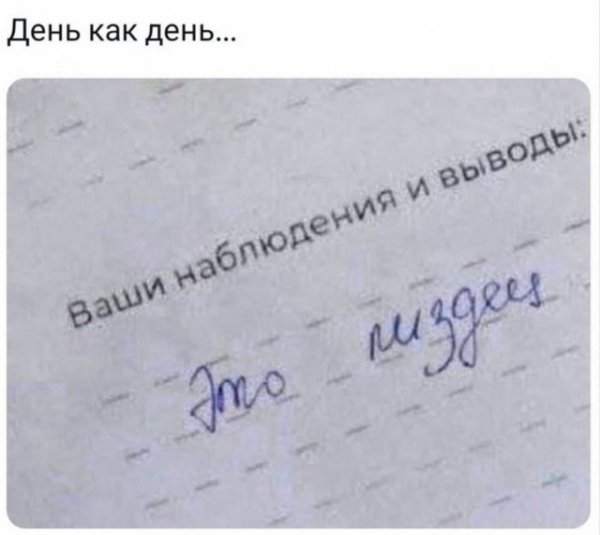 День как день...
Ваши наблюдения и выводы:
Это пиздец